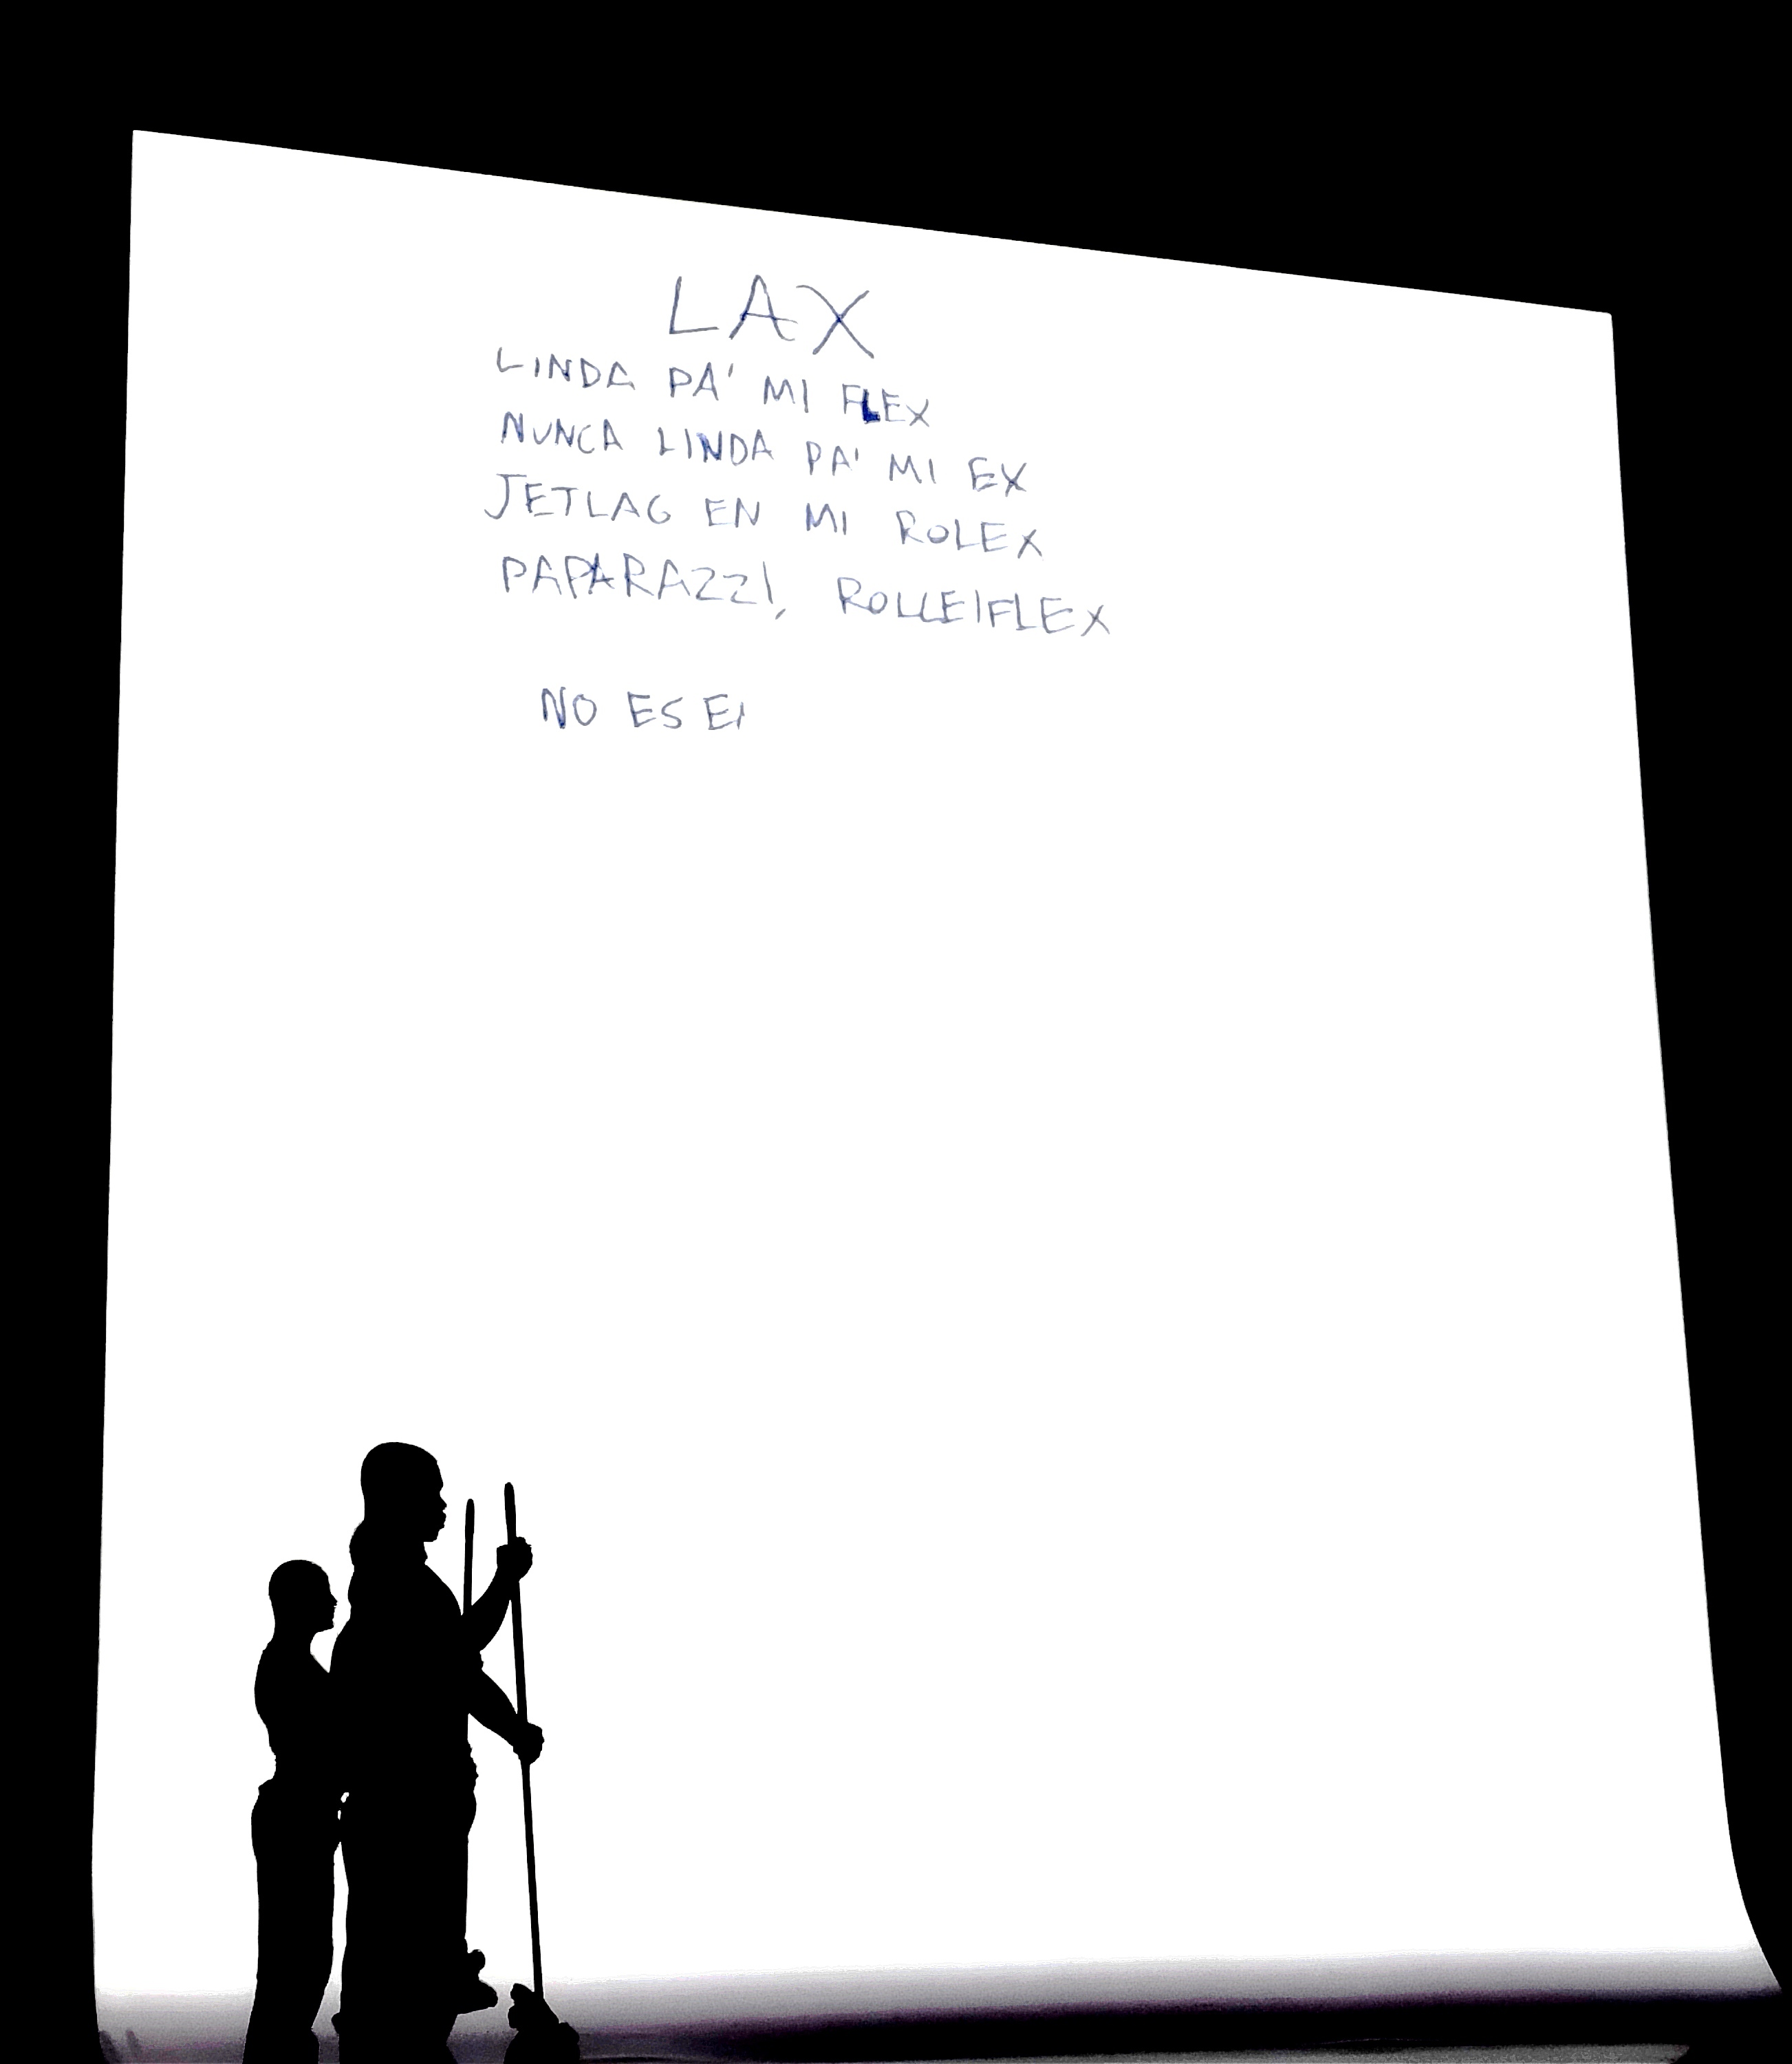 LAX
LINDA PA' MI FLEX
NUNCA LINDA PA' MI EX
JETLAG EN MI ROLEX
PAPARAZZI, ROLLEIFLEX
NO ES